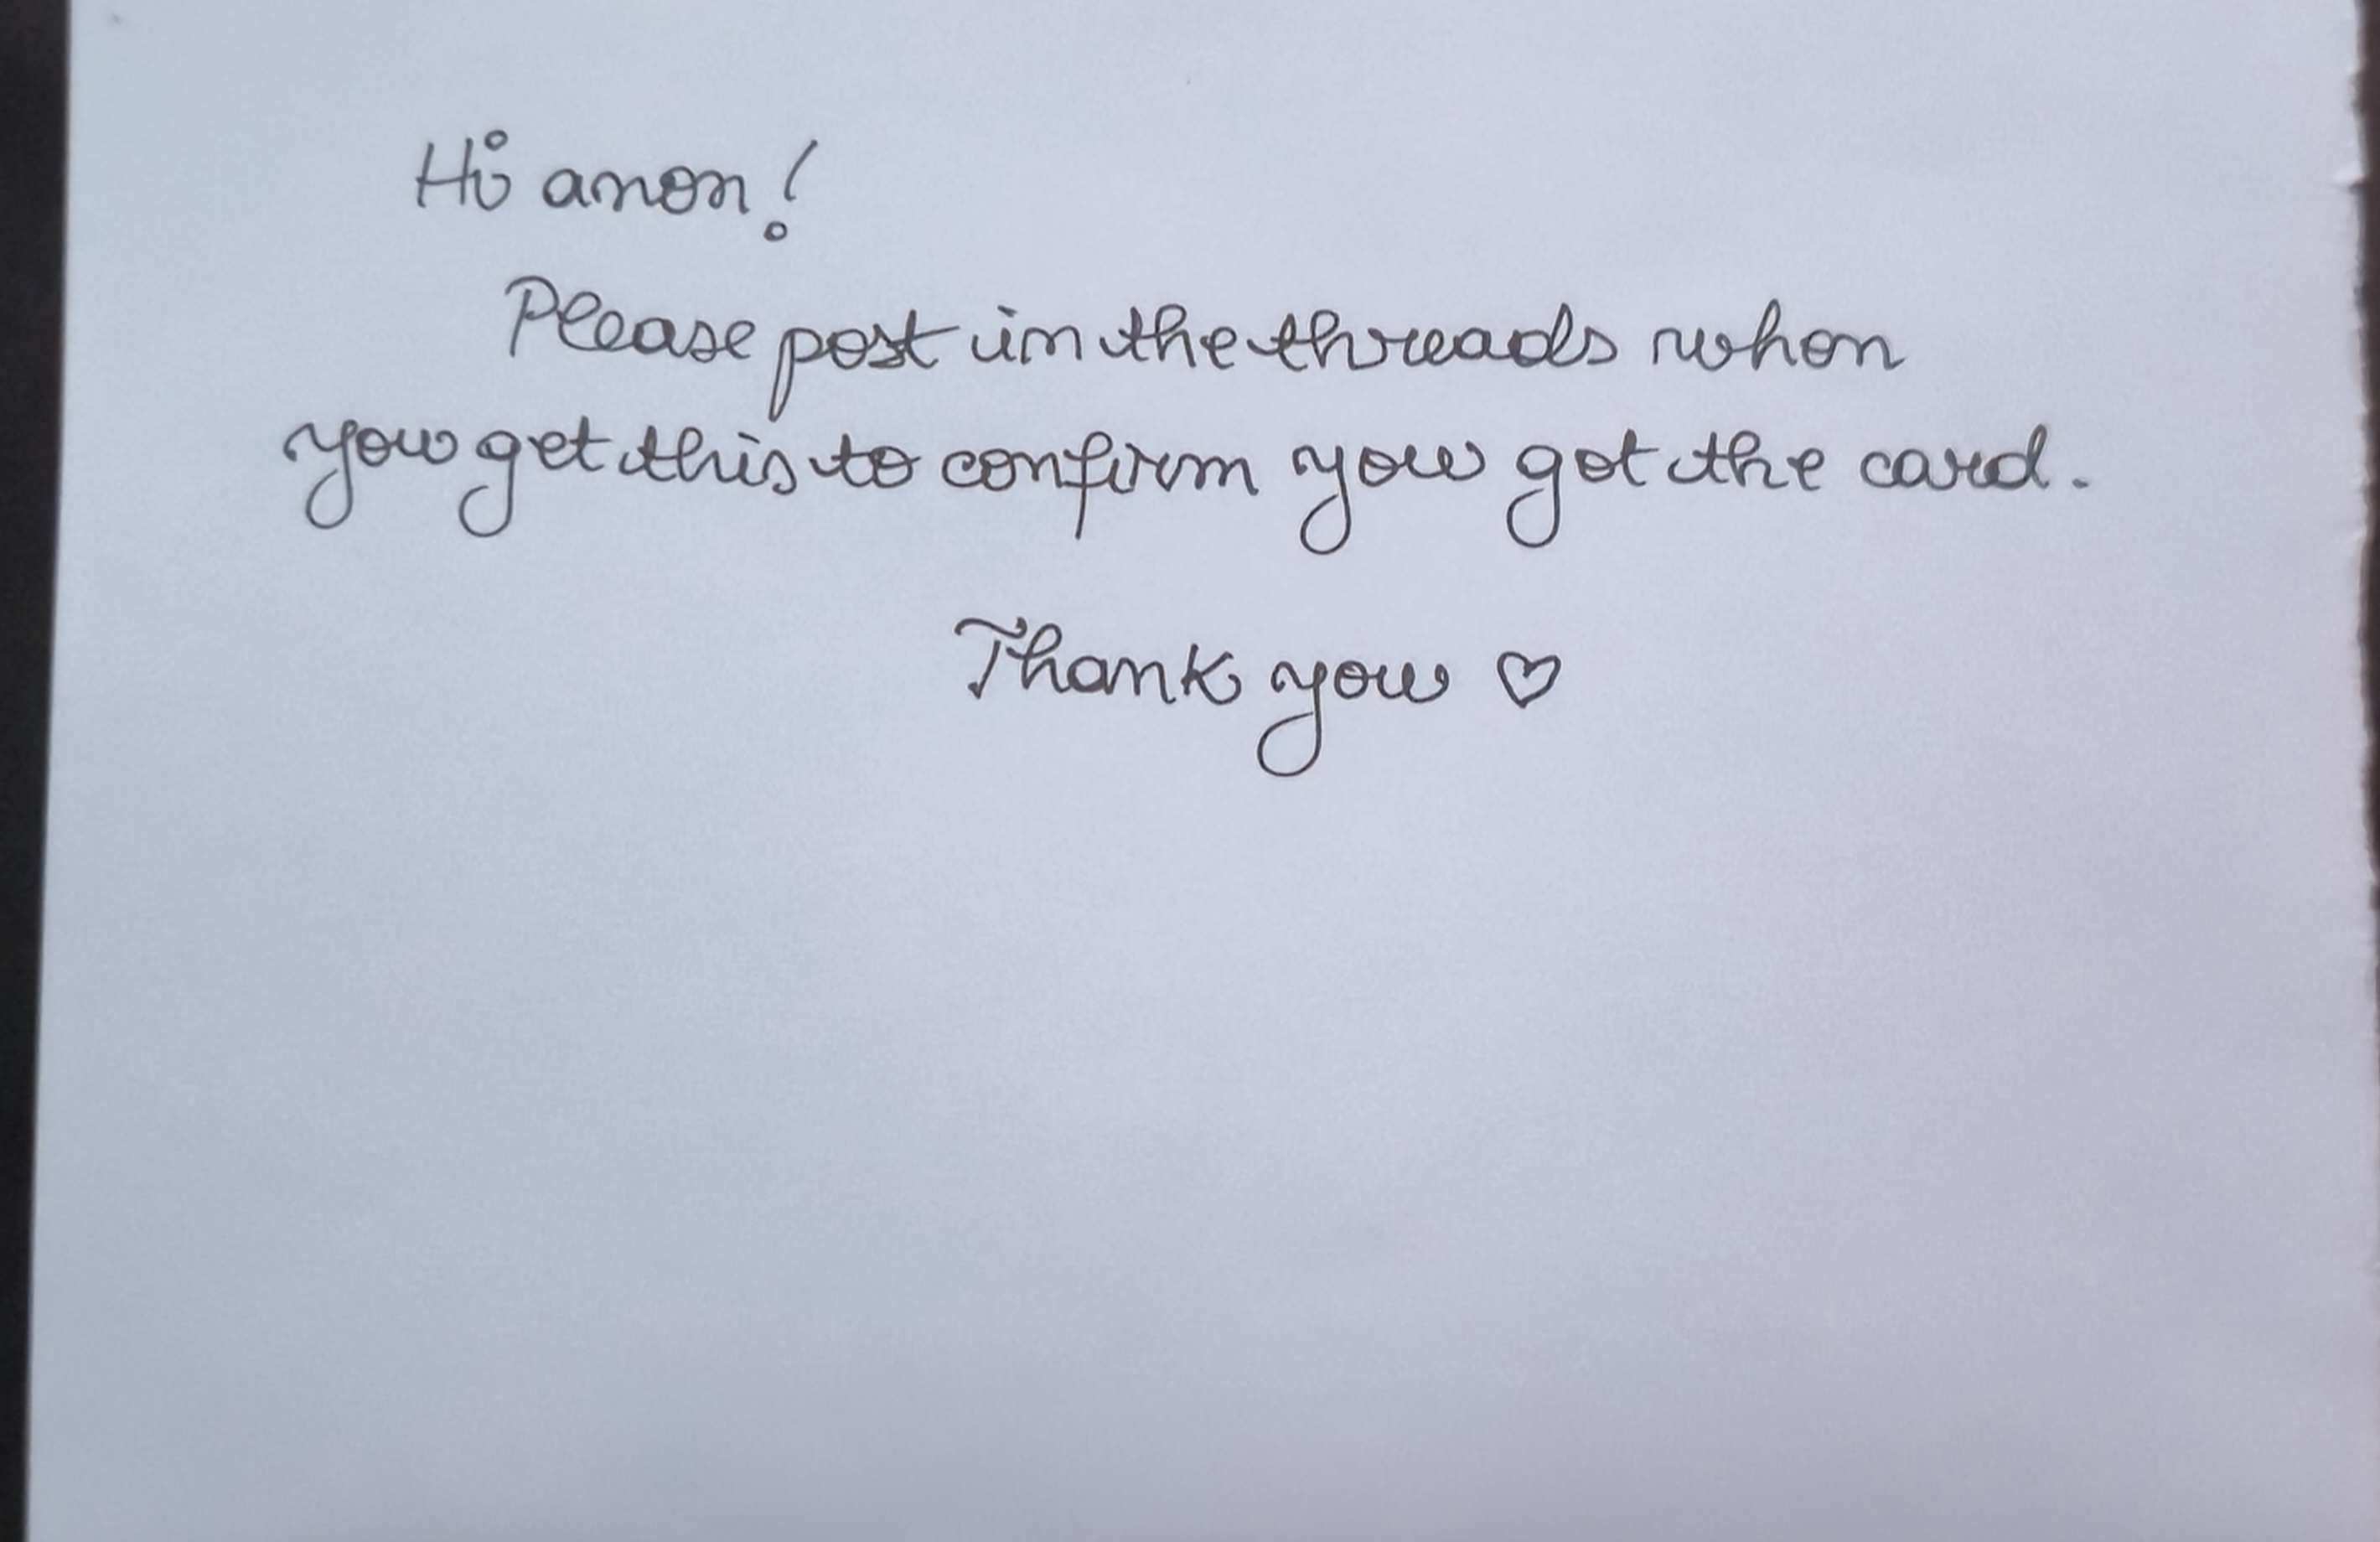 Hi anon!
Please post in the threads when
you get this to confirm you got the card.
Thank you ♡